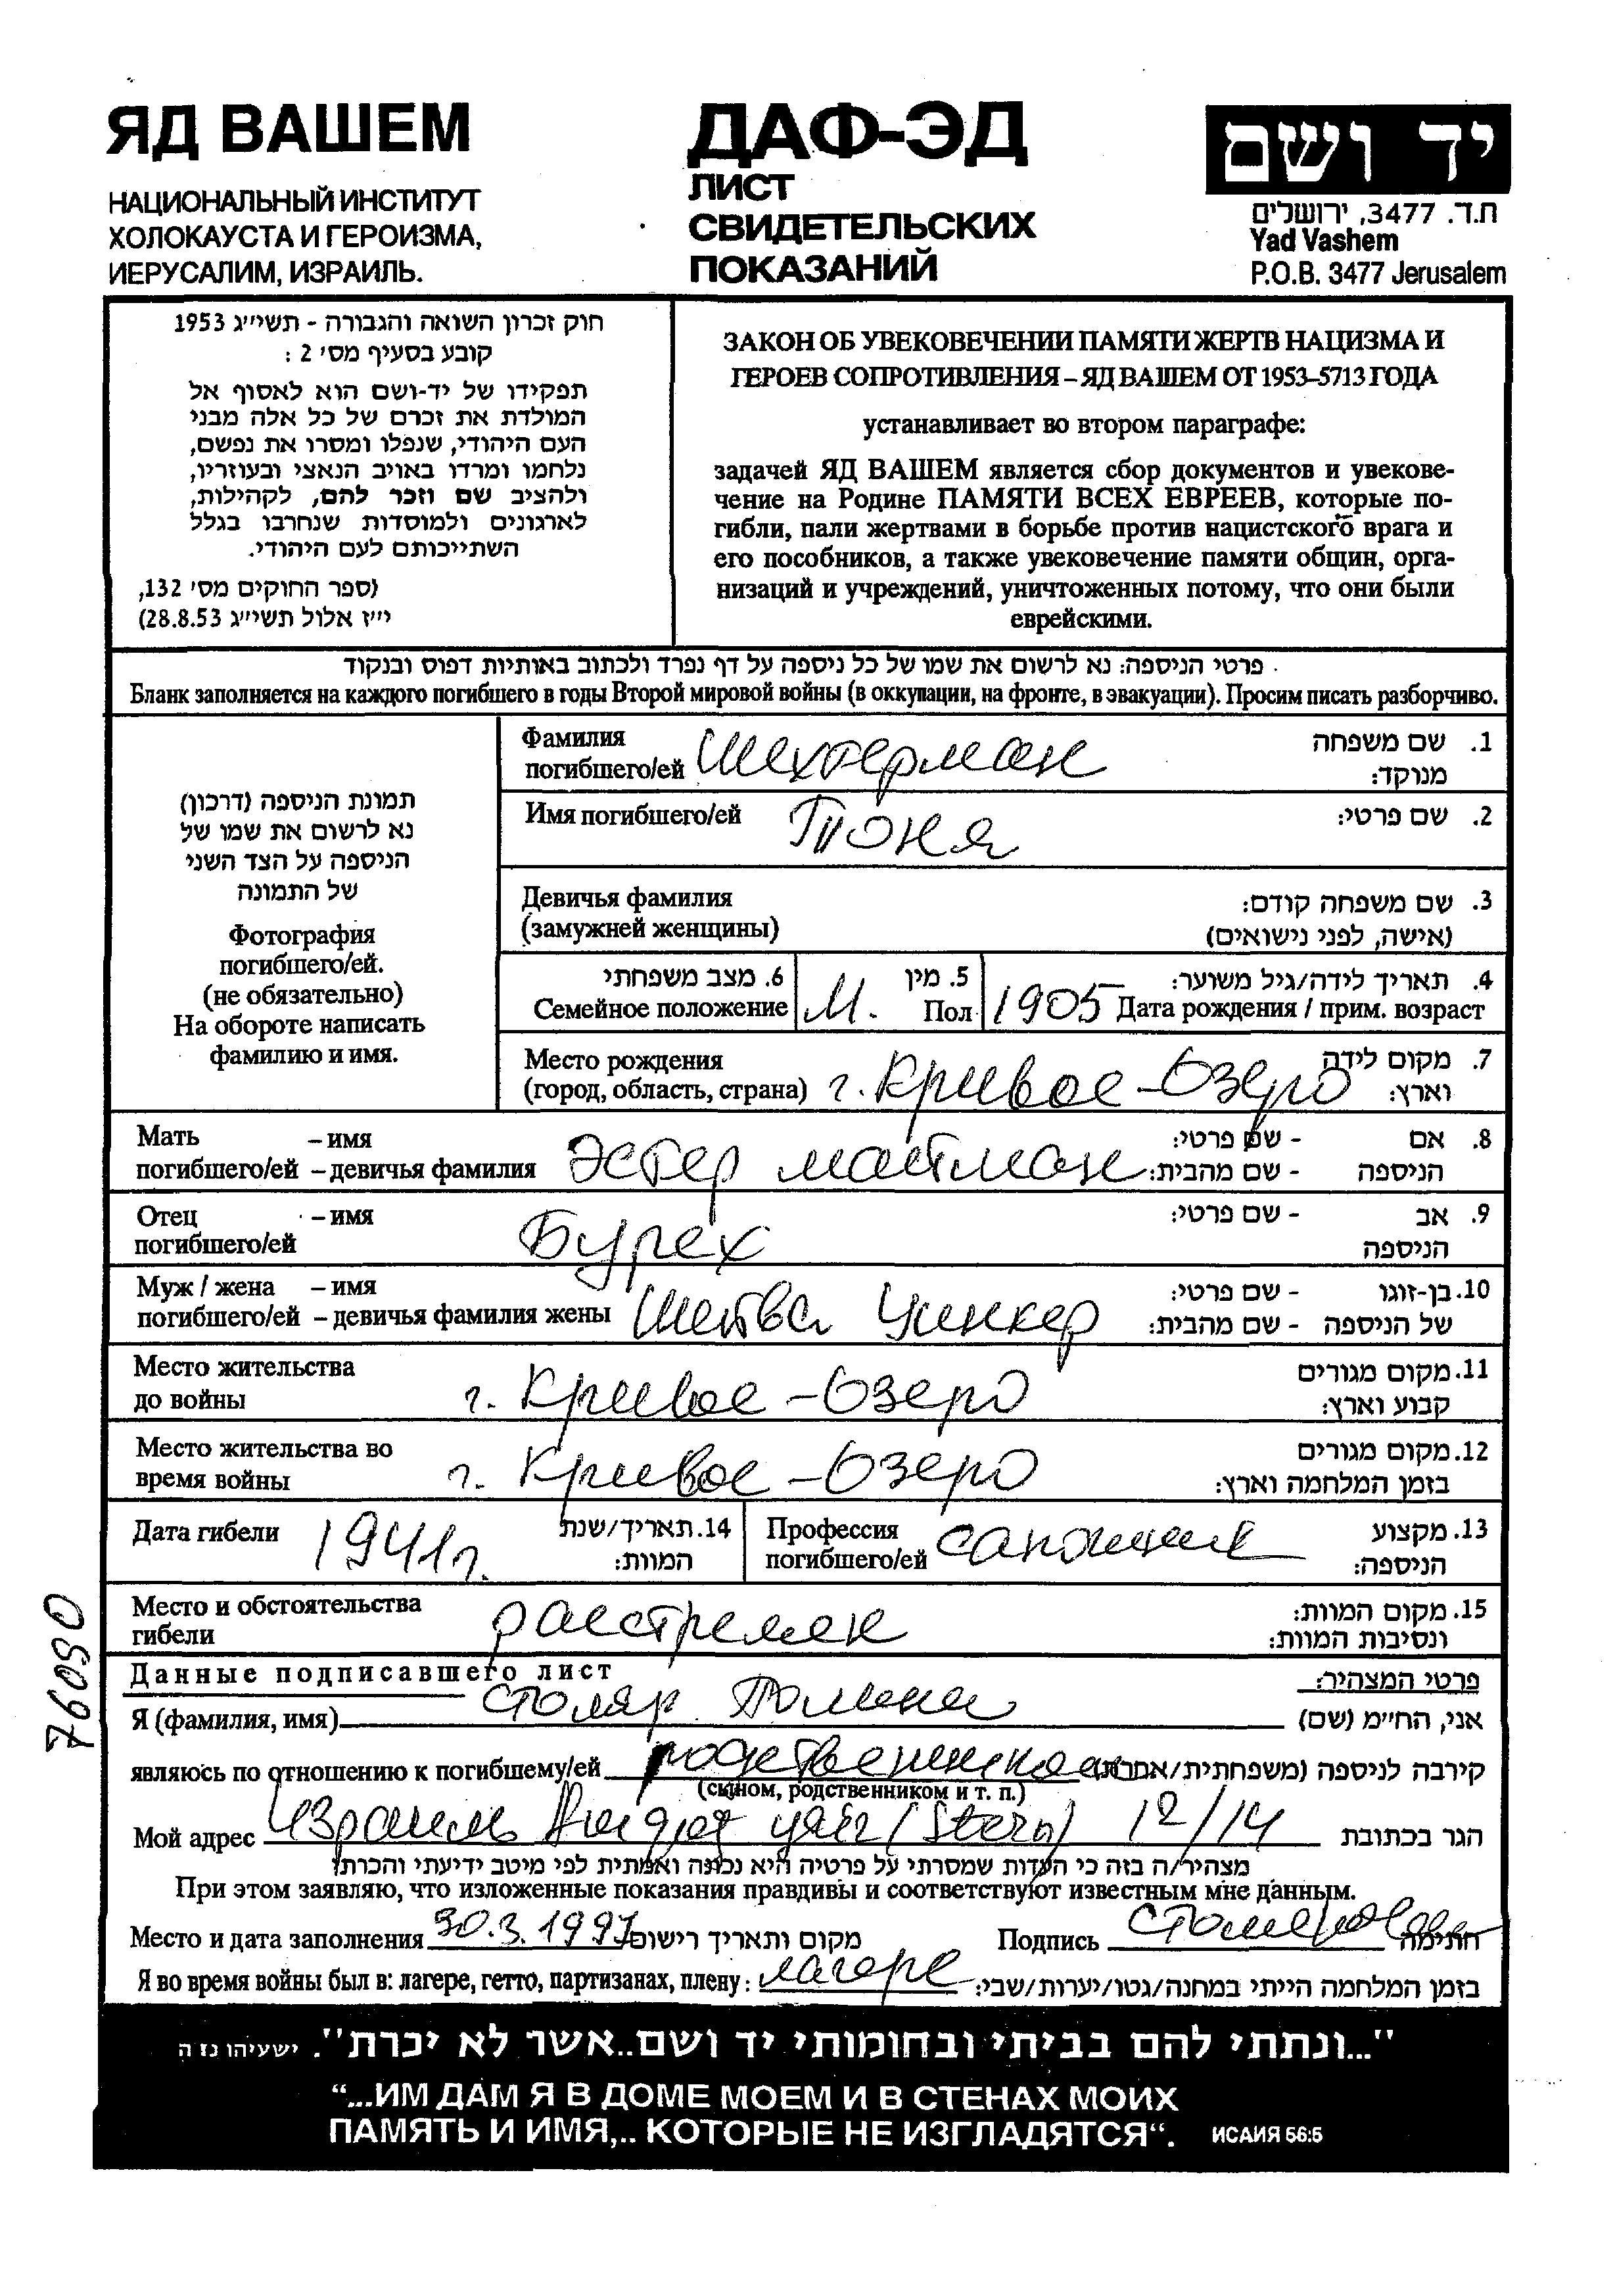 ЯД ВАШЕМ
НАЦИОНАЛЬНЫЙ ИНСТИТУТ
ХОЛОКАУСТА И ГЕРОИЗМА,
ИЕРУСАЛИМ, ИЗРАИЛЬ.
ДАФ-ЭД
ЛИСТ
СВИДЕТЕЛЬСКИХ
ПОКАЗАНИЙ
יד ושם
ת.ד. 3477, ירושלים
Yad Vashem
P.O.B. 3477 Jerusalem
חוק זכרון השואה והגבורה - תשי״ג 1953
קובע בסעיף מס׳ 2 :
תפקידו של יד-ושם הוא לאסוף אל
המולדת את זכרם של כל אלה מבני
העם היהודי, שנפלו ומסרו את נפשם,
נלחמו ומרדו באויב הנאצי ובעוזריו,
ולהציב שם וזכר להם, לקהילות,
לארגונים ולמוסדות שנחרבו בגלל
השתייכותם לעם היהודי.
(ספר החוקים מס׳ 132,
י״ז אלול תשי״ג 28.8.53)
ЗАКОН ОБ УВЕКОВЕЧЕНИИ ПАМЯТИ ЖЕРТВ НАЦИЗМА И
ГЕРОЕВ СОПРОТИВЛЕНИЯ – ЯД ВАШЕМ ОТ 1953–5713 ГОДА
устанавливает во втором параграфе:
задачей ЯД ВАШЕМ является сбор документов и увекове-
чение на Родине ПАМЯТИ ВСЕХ ЕВРЕЕВ, которые по-
гибли, пали жертвами в борьбе против нацистского врага и
его пособников, а также увековечение памяти общин, орга-
низаций и учреждений, уничтоженных потому, что они были
еврейскими.
פרטי הניספה: נא לרשום את שמו של כל ניספה על דף נפרד ולכתוב באותיות דפוס ובנקוד
Бланк заполняется на каждого погибшего в годы Второй мировой войны (в оккупации, на фронте, в эвакуации). Просим писать разборчиво.
תמונת הניספה (דרכון)
נא לרשום את שמו של
הניספה על הצד השני
של התמונה
Фотография
погибшего/ей.
(не обязательно)
На обороте написать
фамилию и имя.
Фамилия 1. שם משפחה
погибшего/ей Шехтерман מנוקד:
Имя погибшего/ей Тоня 2. שם פרטי:
Девичья фамилия 3. שם משפחה קודם:
(замужней женщины) (אישה, לפני נישואים)
6. מצב משפחתי 5. מין 4. תאריך לידה/גיל משוער:
Семейное положение М. Пол 1905 Дата рождения / прим. возраст
Место рождения 7. מקום לידה
(город, область, страна) г. Кривое-Озеро וארץ:
Мать – имя 8. אם - שם פרטי:
погибшего/ей – девичья фамилия Эстер Майтман הניספה - שם מהבית:
Отец – имя 9. אב - שם פרטי:
погибшего/ей Бурех הניספה
Муж / жена – имя 10. בן-זוגו - שם פרטי:
погибшего/ей – девичья фамилия жены של הניספה - שם מהבית:
Место жительства 11. מקום מגורים
до войны г. Кривое-Озеро קבוע וארץ:
Место жительства во 12. מקום מגורים
время войны г. Кривое-Озеро בזמן המלחמה וארץ:
Дата гибели 1941г. 14. תאריך/שנת המוות:
Профессия 13. מקצוע
погибшего/ей сапожник הניספה:
Место и обстоятельства 15. מקום המוות:
гибели расстрелян ונסיבות המוות:
Данные подписавшего лист פרטי המצהיר:
Я (фамилия, имя) Столяр Полина אני, הח״מ (שם)
являюсь по отношению к погибшему/ей родственников קירבה לניספה (משפחתית/אחרת)
(сыном, родственником и т. п.)
Мой адрес Израиль yair (Stern) 12/14 הגר בכתובת
מצהיר/ה בזה כי העדות שמסרתי על פרטיה היא נכונה ואמתית לפי מיטב ידיעתי והכרתי
При этом заявляю, что изложенные показания правдивы и соответствуют известным мне данным.
Место и дата заполнения 30.3.1997 מקום ותאריך רישום Подпись חתימה
Я во время войны был в: лагере, гетто, партизанах, плену: лагере בזמן המלחמה הייתי במחנה/גטו/יערות/שבי:
76090
"...ונתתי להם בביתי ובחומותי יד ושם..אשר לא יכרת". ישעיהו נז ה
“...ИМ ДАМ Я В ДОМЕ МОЕМ И В СТЕНАХ МОИХ
ПАМЯТЬ И ИМЯ,.. КОТОРЫЕ НЕ ИЗГЛАДЯТСЯ“. ИСАИЯ 56:5